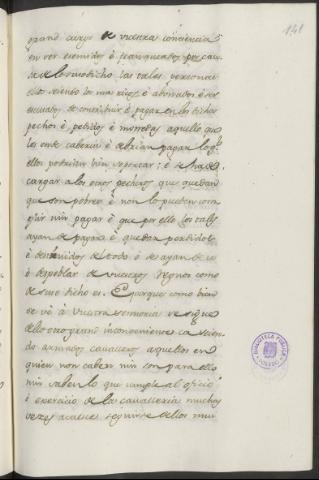 141
grand cargo de vuestra conciencia
en ser esemidos é franqueados por cau
sa de lo susodicho las tales personas
é siendo los mas ricos é abonados é ser
escusados de contribuir é pagar en los dichos
pechos é pedidos é monedas aquello que
les ende caberia é debrian pagar lo qual
ellos podrian bien soportar: é se ha de
cargar a los otros pecheros que quedan
que son pobres é non lo pueden com
plir nin pagar é que por ello los tales
ayan de pagar é quedan perdidos
é destruidos del todo é se ayan de ir
é despoblar de vuestros regnos como
de suso dicho es. E porque como bien
se vé á vuestra señoria se sigue
dello otro grand inconveniente ca seien
do armados cavalleros aquellos en
quien non caben nin son para ello
nin saben lo que cumple al oficio
é exercicio de la cavalleria muchas
vezes acaece seguirse dellos mui
BIBLIOTECA PUBLICA
TOLEDO